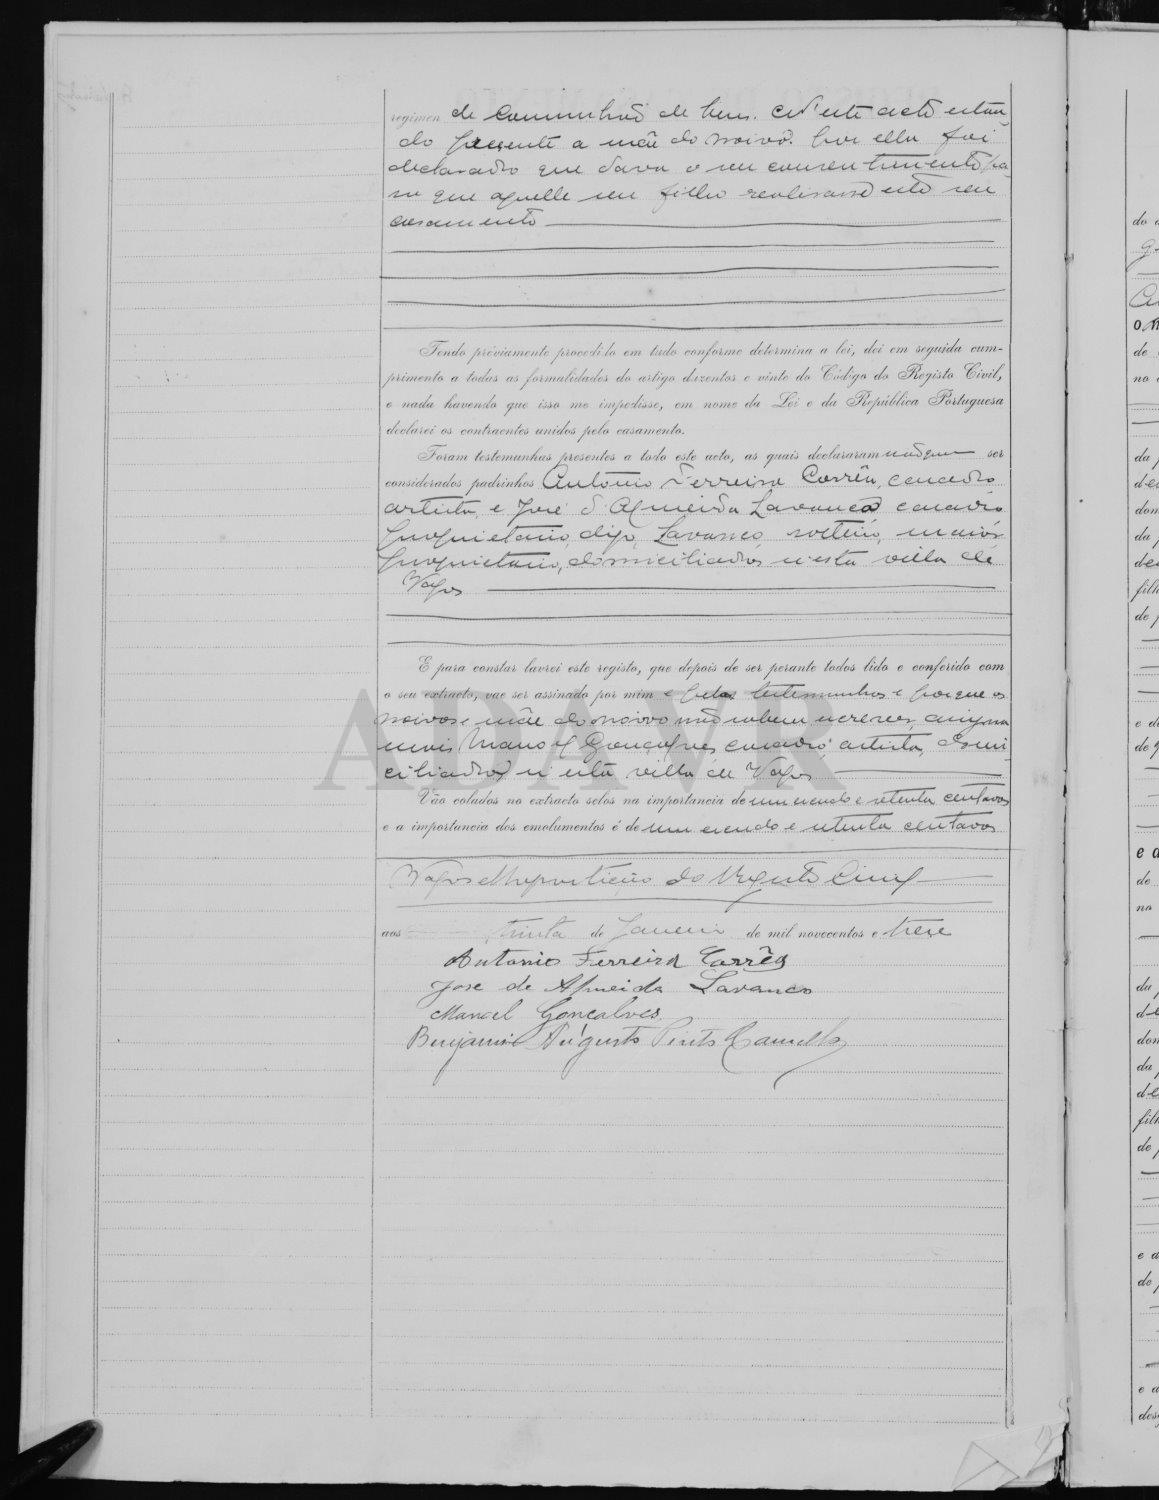 regimen de communhão de bens. N'este acto estan
do presente a mãe do noivo. por ella foi
declarado que dava o seu consentimento pa
ra que aquelle seu filho realisasse este seu
casamento
Tendo préviamente procedido em tudo conforme determina a lei, dei em seguida cum-
primento a todas as formalidades do artigo duzentos e vinte do Código do Registo Civil,
e nada havendo que isso me impedisse, em nome da Lei e da República Portuguesa
declarei os contraentes unidos pelo casamento.
Foram testemunhas presentes a todo este acto, as quais declararam não quer ser
considerados padrinhos Antonio Ferreira Corrêa, casado
artista, e José d'Almeida Lavanco casado
proprietario, digo, Lavanco solteiro, maior
proprietario, domiciliados n'esta villa de
Vagos
E para constar lavrei este registo, que depois de ser perante todos lido e conferido com
o seu extracto, vae ser assinado por mim e pelas testemunhas e porque os
noivos e mãe do noivo não sabem escrever, assigna
mais Manoel Gonçalves casado, artista, domi
ciliados n'esta villa de Vagos
Vão colados no extracto selos na importancia de um escudo e setenta centavos
e a importancia dos emolumentos é de um escudo e setenta centavos
Vagos e Repartição do Registo Civil
aos trinta de Janeiro de mil novecentos e treze
Antonio Ferreira Corrêa
Jose de Almeida Lavanco
Manoel Gonçalves
Benjamin Augusto Pinto Camello
ADAVR
do
o
de
no
da
dom
da
filh
de
e d
de
e a
de
no
da
dom
da
filh
de
e a
de
e a
des